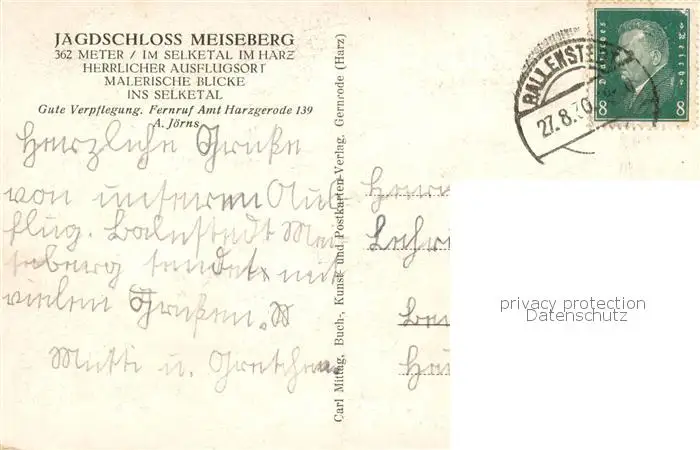 JAGDSCHLOSS MEISEBERG
362 METER / IM SELKETAL IM HARZ
HERRLICHER AUSFLUGSORT
MALERISCHE BLICKE
INS SELKETAL
Gute Verpflegung. Fernruf Amt Harzgerode 139
A. Jörns
Herzliche Grüße
von unseren Aus
flug. Balnstedt Mei
seberg sendet mit
vielen Grüßen.
Mutti u. Gretchen
Carl Mittag, Buch-, Kunst- und Postkarten-Verlag, Gernrode (Harz)
BALLENSTEDT
27.8.30
Deutsches Reich
8 8
privacy protection
Datenschutz